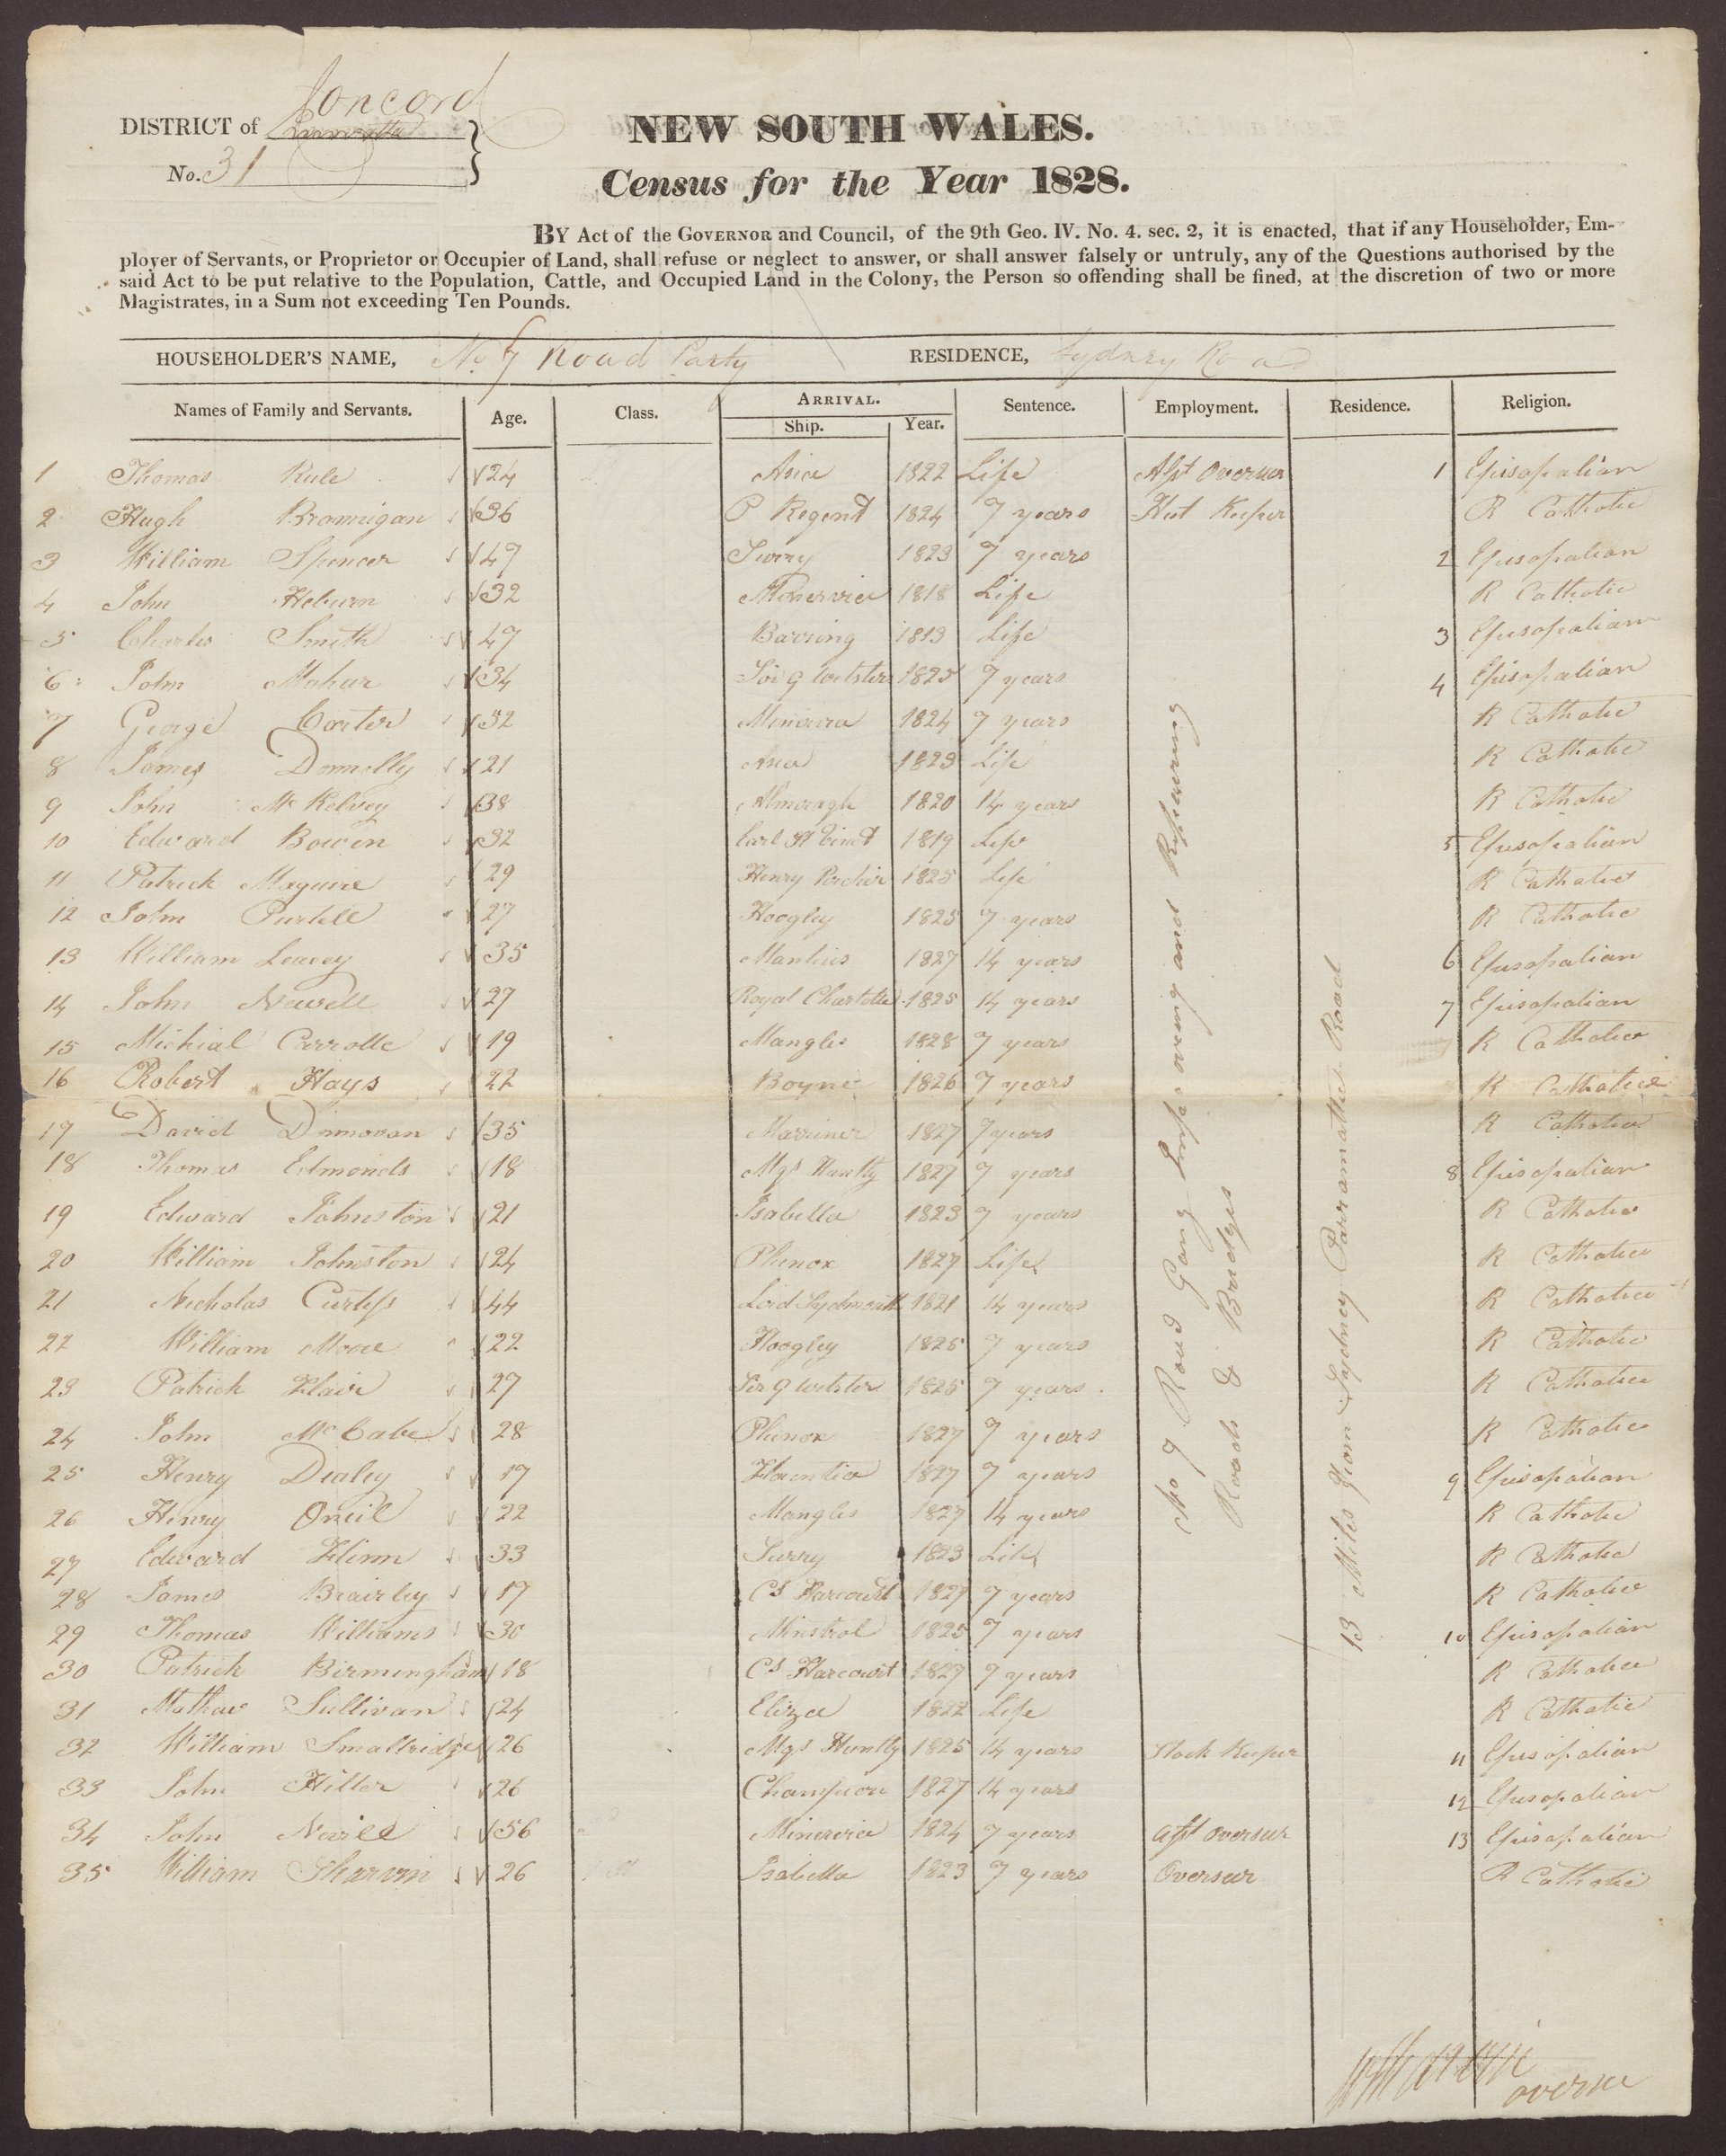 DISTRICT of Concord
No. 31
NEW SOUTH WALES.
Census for the Year 1828.
BY Act of the GOVERNOR and Council, of the 9th Geo. IV. No. 4. sec. 2, it is enacted, that if any Householder, Em-
ployer of Servants, or Proprietor or Occupier of Land, shall refuse or neglect to answer, or shall answer falsely or untruly, any of the Questions authorised by the
said Act to be put relative to the Population, Cattle, and Occupied Land in the Colony, the Person so offending shall be fined, at the discretion of two or more
Magistrates, in a Sum not exceeding Ten Pounds.
HOUSEHOLDER'S NAME, No. 7 Road Party RESIDENCE, Sydney Road
Names of Family and Servants. Age. Class. ARRIVAL. Ship. Year. Sentence. Employment. Residence. Religion.
1 Thomas Rule 24 Asia 1822 Life Asst Overseer 1 Episopalian
2 Hugh Brannigan 36 P Regent 1824 7 years Hut Keeper R Catholic
3 William Spencer 47 Surry 1823 7 years 2 Episopalian
4 John Heburn 32 Minervia 1818 Life R Catholic
5 Charles Smith 47 Barring 1813 Life 3 Episopalian
6 John Mahar 34 Sir G Webster 1825 7 years 4 Episopalian
7 George Carter 32 Minerva 1824 7 years R Catholic
8 James Donnolly 21 Asia 1823 Life R Catholic
9 John McKelvey 38 Almoragh 1820 14 years R Catholic
10 Edward Bowen 32 Earl St Vinct 1819 Life 5 Episopalian
11 Patrick Maguire 29 Henry Porcher 1825 Life R Catholic
12 John Purtell 27 Hoogley 1825 7 years R Catholic
13 William Leavey 35 Manlius 1827 14 years 6 Episopalian
14 John Newell 27 Royal Charlotte 1825 14 years 7 Episopalian
15 Michial Carrolle 19 Mangles 1828 7 years R Catholic
16 Robert Hays 22 Boyne 1826 7 years R Catholic
17 David Dinnovan 35 Marriner 1827 7 years R Catholic
18 Thomas Edmonds 18 Mqs Huntly 1827 7 years 8 Episopalian
19 Edward Johnston 21 Isabella 1823 7 years R Catholic
20 William Johnston 24 Phenox 1827 Life R Catholic
21 Nicholas Curtiss 44 Lord Sydmouth 1821 14 years R Catholic
22 William Moore 22 Hoogley 1825 7 years R Catholic
23 Patrick Hair 27 Sir G Webster 1825 7 years R Catholic
24 John McCabe 28 Phenox 1827 7 years R Catholic
25 Henry Dealey 17 1827 7 years 9 Episopalian
26 Henry Oneil 22 Mangles 1827 14 years R Catholic
27 Edward Flinn 33 Surry 1823 Life R Catholic
28 James Brairley 17 Cs Harcourt 1827 7 years R Catholic
29 Thomas Williams 30 Minstrol 1825 7 years 10 Episopalian
30 Patrick Birmingham 18 Cs Harcourt 1827 7 years R Catholic
31 Mathew Sullivan 24 Eliza 1822 Life R Catholic
32 William Smallridge 26 Mqs Huntly 1825 14 years Stock Keeper 11 Episopalian
33 John Hiller 26 Champion 1827 14 years 12 Episopalian
34 John 56 Minervia 1824 7 years asst overseer 13 Episopalian
35 William Sharvin 26 Isabella 1823 7 years Overseer R Catholic
No 7 Road Gang Improving and Repairing
Roads & Bridges
13 Miles from Sydney Parramatta Road
W Sharvin
overseer